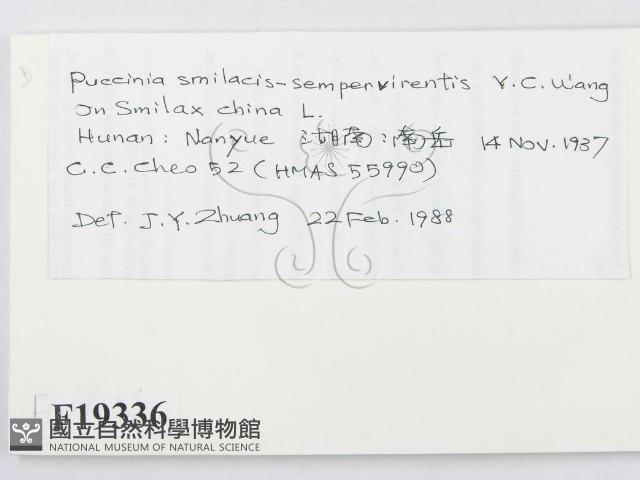 Puccinia smilacis-sempervirentis Y.C. Wang
on Smilax china L.
Hunan: Nanyue 湖南:南岳 14 Nov. 1937
C.C. Cheo 52 (HMAS 55990)
Det. J.Y. Zhuang 22 Feb. 1988
F19336
國立自然科學博物館
NATIONAL MUSEUM OF NATURAL SCIENCE